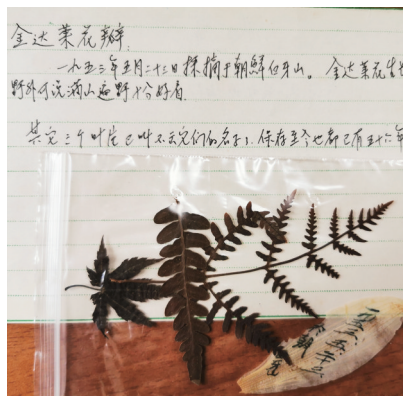 金达莱花瓣:
一九五三年五月二十三日採摘于朝鲜白牙山。金达莱花生长
野外可说满山遍野十分好看.
其它三个叶片已叫不出它们的名字了.保存至今也都已有五十六年
一九五三.五.廿三